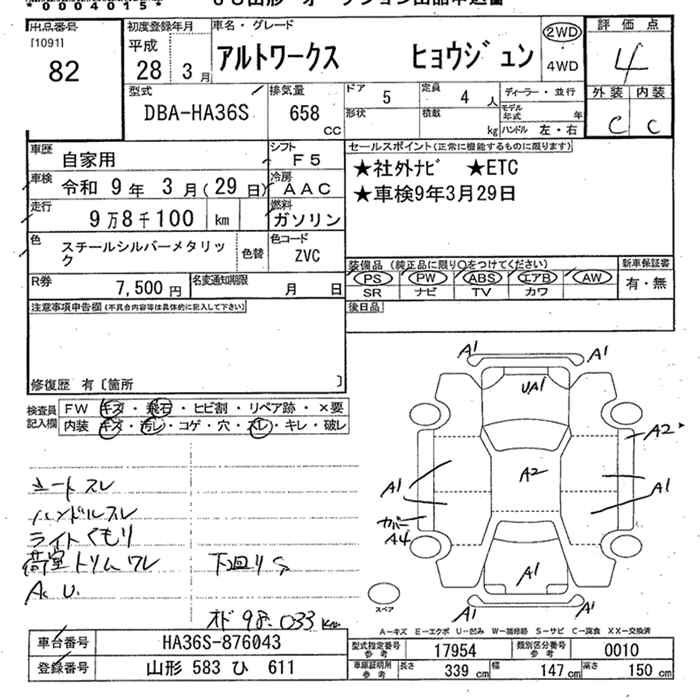 00040154
出品番号
[1091]
82
初度登録年月
平成
28 3 月
車名・グレード
アルトワークス ヒョウジュン
2WD
・
4WD
評価点
4
外装 内装
C C
型式
DBA-HA36S
排気量
658
CC
ドア
5
定員
4 人
形状
積載
kg
ディーラー・並行
モデル年式
年
ハンドル 左・右
車歴
自家用
シフト
F5
車検
令和 9 年 3 月 (29 日)
冷房
AAC
走行
9万8千100 km
燃料
ガソリン
色
スチールシルバーメタリック
色替
色コード
ZVC
R券
7,500 円
名変通知期限
月 日
セールスポイント(正常に機能するものに限ります)
★社外ナビ ★ETC
★車検9年3月29日
装備品 (純正品に限り○をつけてください)
新車保証書
PS PW ABS エアB AW
有・無
SR ナビ TV カワ
後日品
注意事項申告欄(不具合内容等は具体的に記入して下さい)
修復歴 有〔箇所 〕
検査員記入欄
FW キズ・飛石・ヒビ割・リペア跡・×要
内装 キズ・汚レ・コゲ・穴・スレ・キレ・破レ
シートスレ
ハンドルスレ
ライトくもり
荷室トリムワレ
下廻りS
A. U.
オド 98.033 km
A1
A1
UA1
A2
A2
A1
A1
カバー
A4
A1
A1
A1
スペア
A-キズ E-エクボ U-凹み W-補修跡 S-サビ C-腐食 XX-交換済
車台番号
HA36S-876043
登録番号
山形 583 ひ 611
型式指定番号
参考
17954
類別区分番号
参考
0010
車庫証明用
参考
長さ
339 cm
幅
147 cm
高さ
150 cm